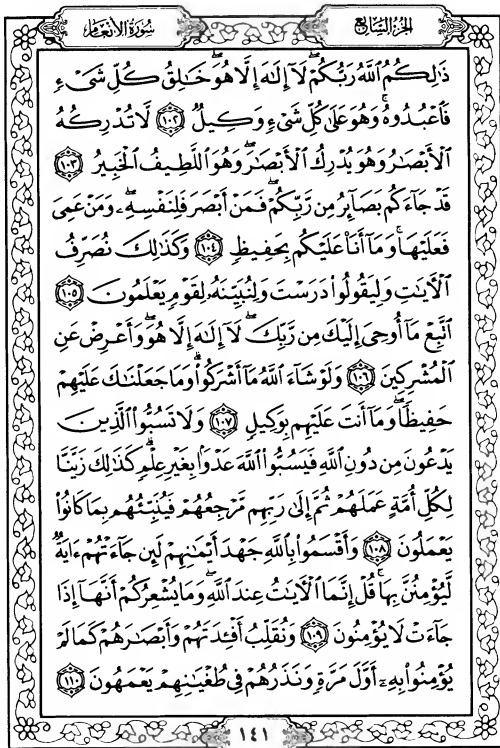 الجزء السابع
سورة الأنعام
ذَٰلِكُمُ ٱللَّهُ رَبُّكُمْۖ لَآ إِلَٰهَ إِلَّا هُوَۖ خَٰلِقُ كُلِّ شَىْءٍ
فَٱعْبُدُوهُۚ وَهُوَ عَلَىٰ كُلِّ شَىْءٍ وَكِيلٌ ١٠٢ لَّا تُدْرِكُهُ
ٱلْأَبْصَٰرُ وَهُوَ يُدْرِكُ ٱلْأَبْصَٰرَۖ وَهُوَ ٱللَّطِيفُ ٱلْخَبِيرُ ١٠٣
قَدْ جَآءَكُم بَصَآئِرُ مِن رَّبِّكُمْۖ فَمَنْ أَبْصَرَ فَلِنَفْسِهِۦۖ وَمَنْ عَمِىَ
فَعَلَيْهَاۚ وَمَآ أَنَا۠ عَلَيْكُم بِحَفِيظٍ ١٠٤ وَكَذَٰلِكَ نُصَرِّفُ
ٱلْءَايَٰتِ وَلِيَقُولُوا۟ دَرَسْتَ وَلِنُبَيِّنَهُۥ لِقَوْمٍ يَعْلَمُونَ ١٠٥
ٱتَّبِعْ مَآ أُوحِىَ إِلَيْكَ مِن رَّبِّكَۖ لَآ إِلَٰهَ إِلَّا هُوَۖ وَأَعْرِضْ عَنِ
ٱلْمُشْرِكِينَ ١٠٦ وَلَوْ شَآءَ ٱللَّهُ مَآ أَشْرَكُوا۟ۗ وَمَا جَعَلْنَٰكَ عَلَيْهِمْ
حَفِيظًاۖ وَمَآ أَنتَ عَلَيْهِم بِوَكِيلٍ ١٠٧ وَلَا تَسُبُّوا۟ ٱلَّذِينَ
يَدْعُونَ مِن دُونِ ٱللَّهِ فَيَسُبُّوا۟ ٱللَّهَ عَدْوًۢا بِغَيْرِ عِلْمٍۗ كَذَٰلِكَ زَيَّنَّا
لِكُلِّ أُمَّةٍ عَمَلَهُمْ ثُمَّ إِلَىٰ رَبِّهِم مَّرْجِعُهُمْ فَيُنَبِّئُهُم بِمَا كَانُوا۟
يَعْمَلُونَ ١٠٨ وَأَقْسَمُوا۟ بِٱللَّهِ جَهْدَ أَيْمَٰنِهِمْ لَئِن جَآءَتْهُمْ ءَايَةٌ
لَّيُؤْمِنُنَّ بِهَاۚ قُلْ إِنَّمَا ٱلْءَايَٰتُ عِندَ ٱللَّهِۖ وَمَا يُشْعِرُكُمْ أَنَّهَآ إِذَا
جَآءَتْ لَا يُؤْمِنُونَ ١٠٩ وَنُقَلِّبُ أَفْـِٔدَتَهُمْ وَأَبْصَٰرَهُمْ كَمَا لَمْ
يُؤْمِنُوا۟ بِهِۦٓ أَوَّلَ مَرَّةٍ وَنَذَرُهُمْ فِى طُغْيَٰنِهِمْ يَعْمَهُونَ ١١٠
١٤١